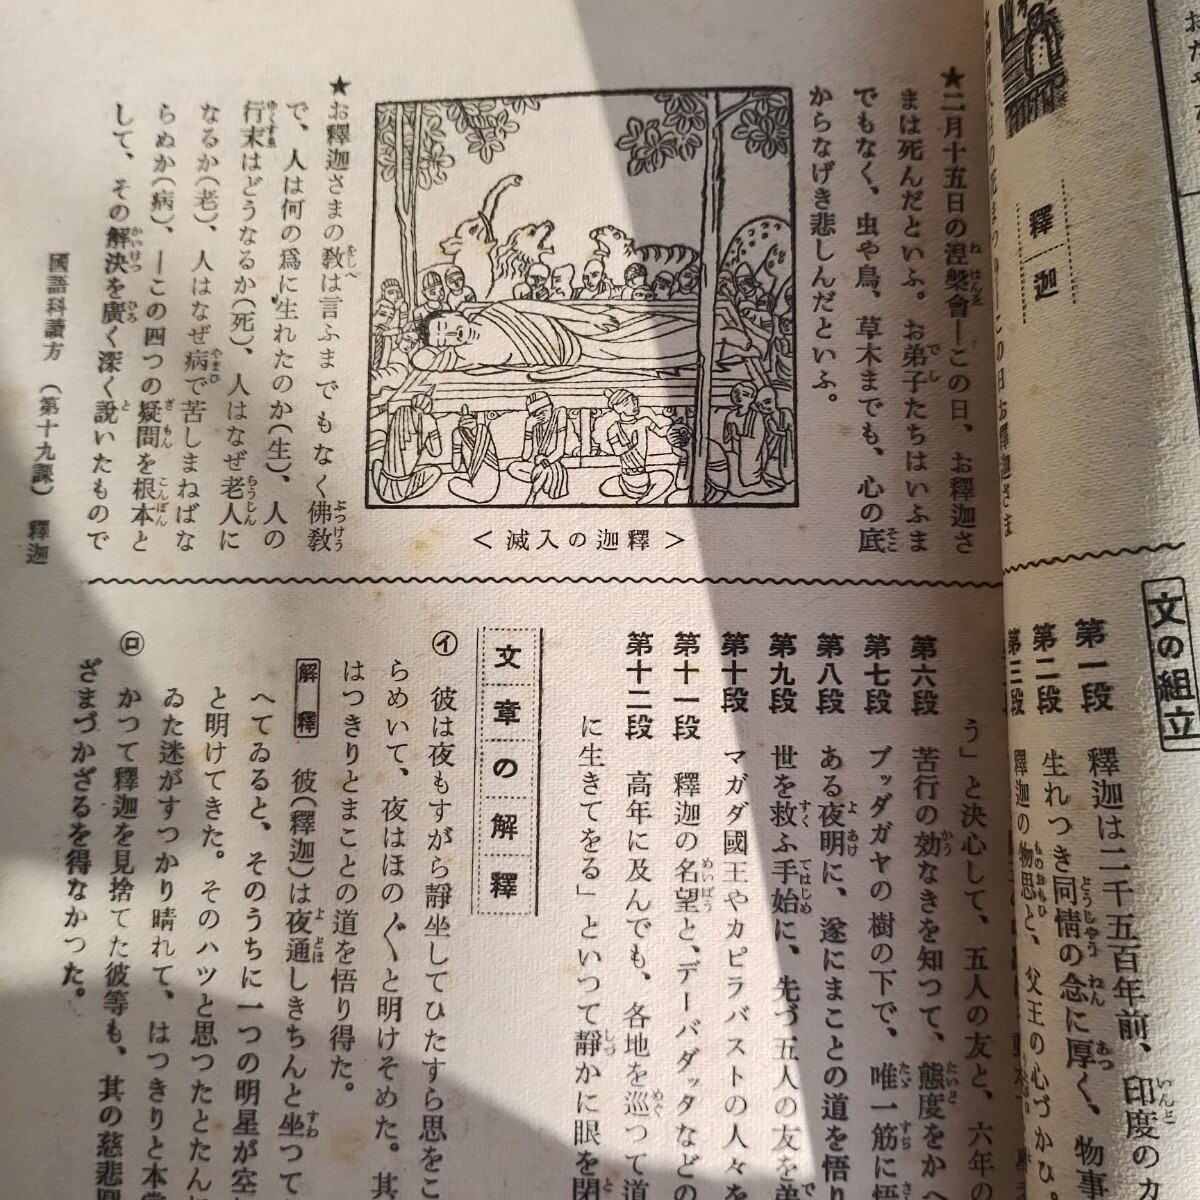 釋迦
★二月十五日の涅槃會ーこの日、お釋迦さ
まは死んだといふ。お弟子たちはいふま
でもなく、虫や鳥、草木までも、心の底
からなげき悲しんだといふ。
＜釋迦の入滅＞
★お釋迦さまの敎は言ふまでもなく佛敎
で、人は何の爲に生れたのか(生)、人の
行末はどうなるか(死)、人はなぜ老人に
なるか(老)、人はなぜ病で苦しまねばな
らぬか(病)、ーこの四つの疑問を根本と
して、その解決を廣く深く說いたもので
國語科讀方 (第十九課) 釋迦
文の組立
第一段 釋迦は二千五百年前、印度のカ
第二段 生れつき同情の念に厚く、物事
第三段 釋迦の物思と、父王の心づかひ
う」と決心して、五人の友と、六年の
第六段 苦行の効なきを知つて、態度をかへ
第七段 ブッダガヤの樹の下で、唯一筋に悟
第八段 ある夜明に、遂にまことの道を悟り
第九段 世を救ふ手始に、先づ五人の友を弟
第十段 マガダ國王やカピラバストの人々を
第十一段 釋迦の名望と、デーバダッタなどの
第十二段 高年に及んでも、各地を巡つて道
に生きてをる」といつて靜かに眼を閉
文章の解釋
㋑ 彼は夜もすがら靜坐してひたすら思をこ
らめいて、夜はほの〴〵と明けそめた。其
はつきりとまことの道を悟り得た。
解釋 彼(釋迦)は夜通しきちんと坐つて
へてゐると、そのうちに一つの明星が空
と明けてきた。そのハツと思つたとたん
ゐた迷がすつかり晴れて、はつきりと本當
㋺ かつて釋迦を見捨てた彼等も、其の慈悲圓
ざまづかざるを得なかつた。